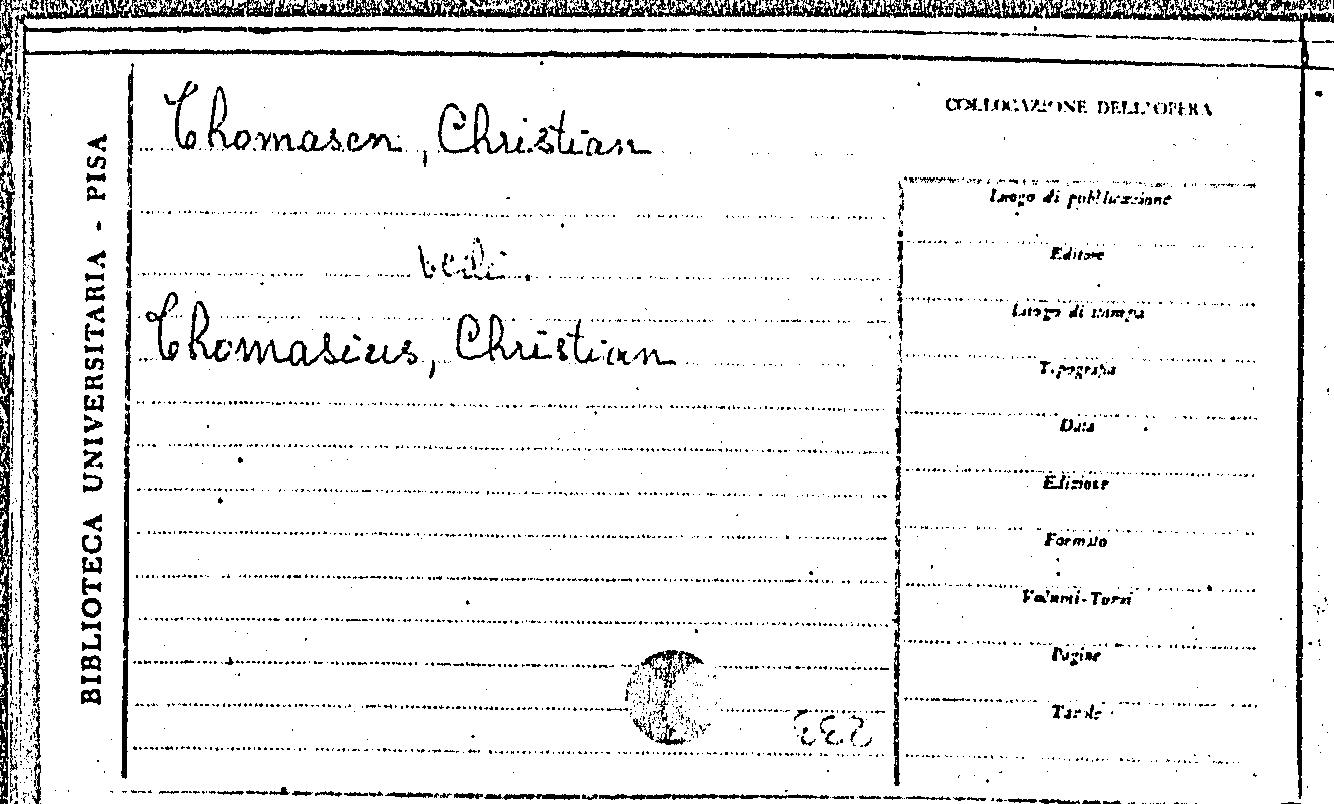 BIBLIOTECA UNIVERSITARIA - PISA
Thomasen, Christian
vedi.
Thomasius, Christian
COLLOCAZIONE DELL'OPERA
Luogo di pubblicazione
Editore
Luogo di stampa
Tipografia
Data
Edizione
Formato
Volumi-Tomi
Pagine
Tavole